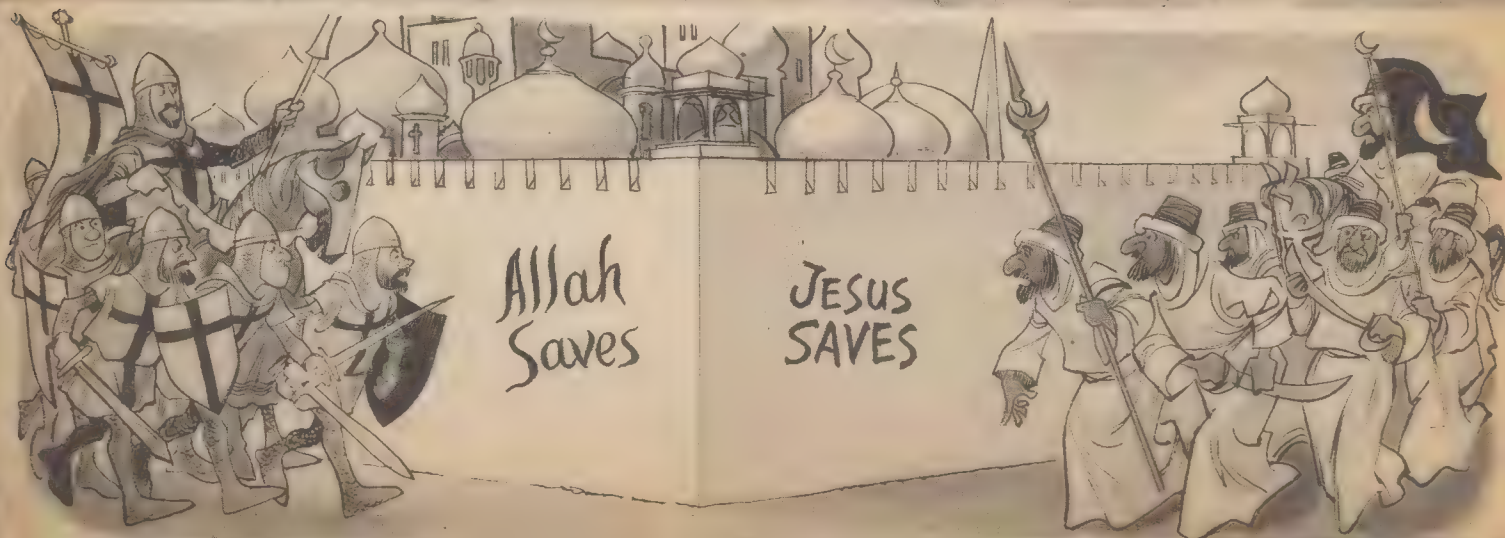 Allah
Saves
JESUS
SAVES